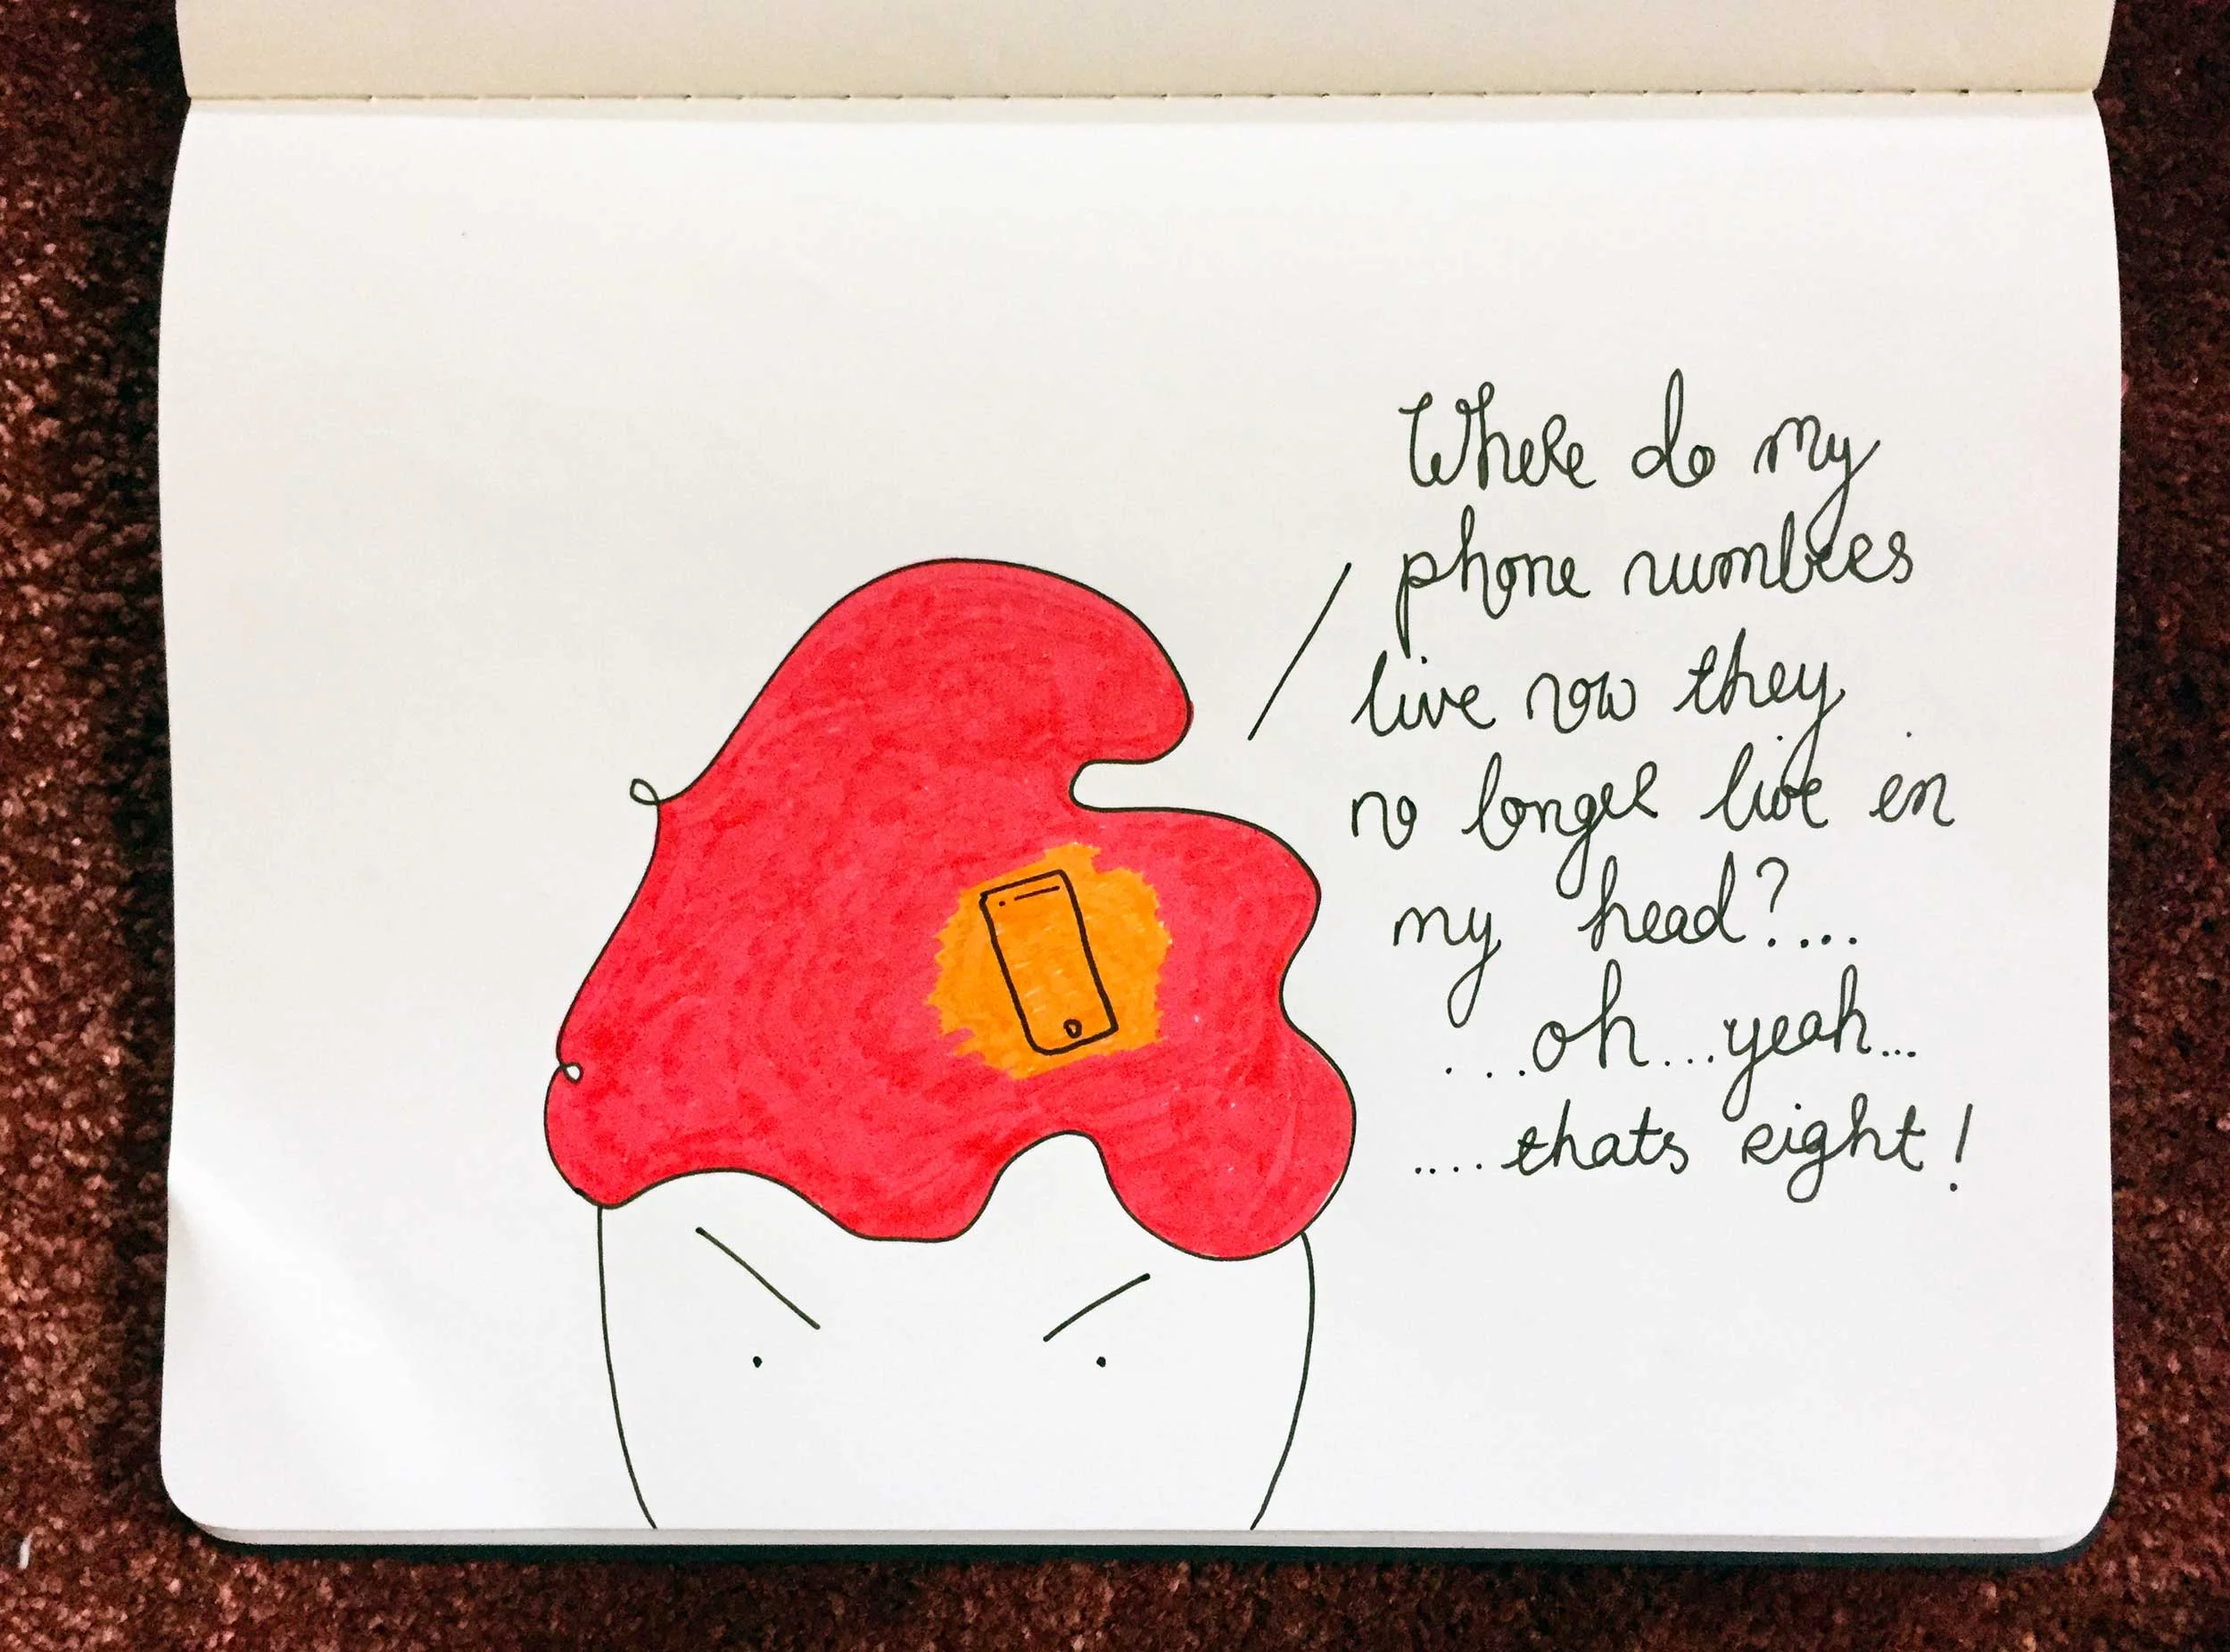 Where do my
phone numbers
live now they
no longer live in
my head?....
...oh...yeah...
....thats right!